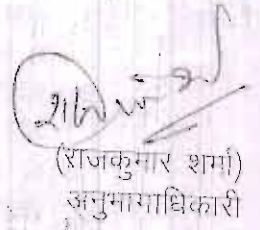 (राजकुमार शर्मा)
अनुभागाधिकारी